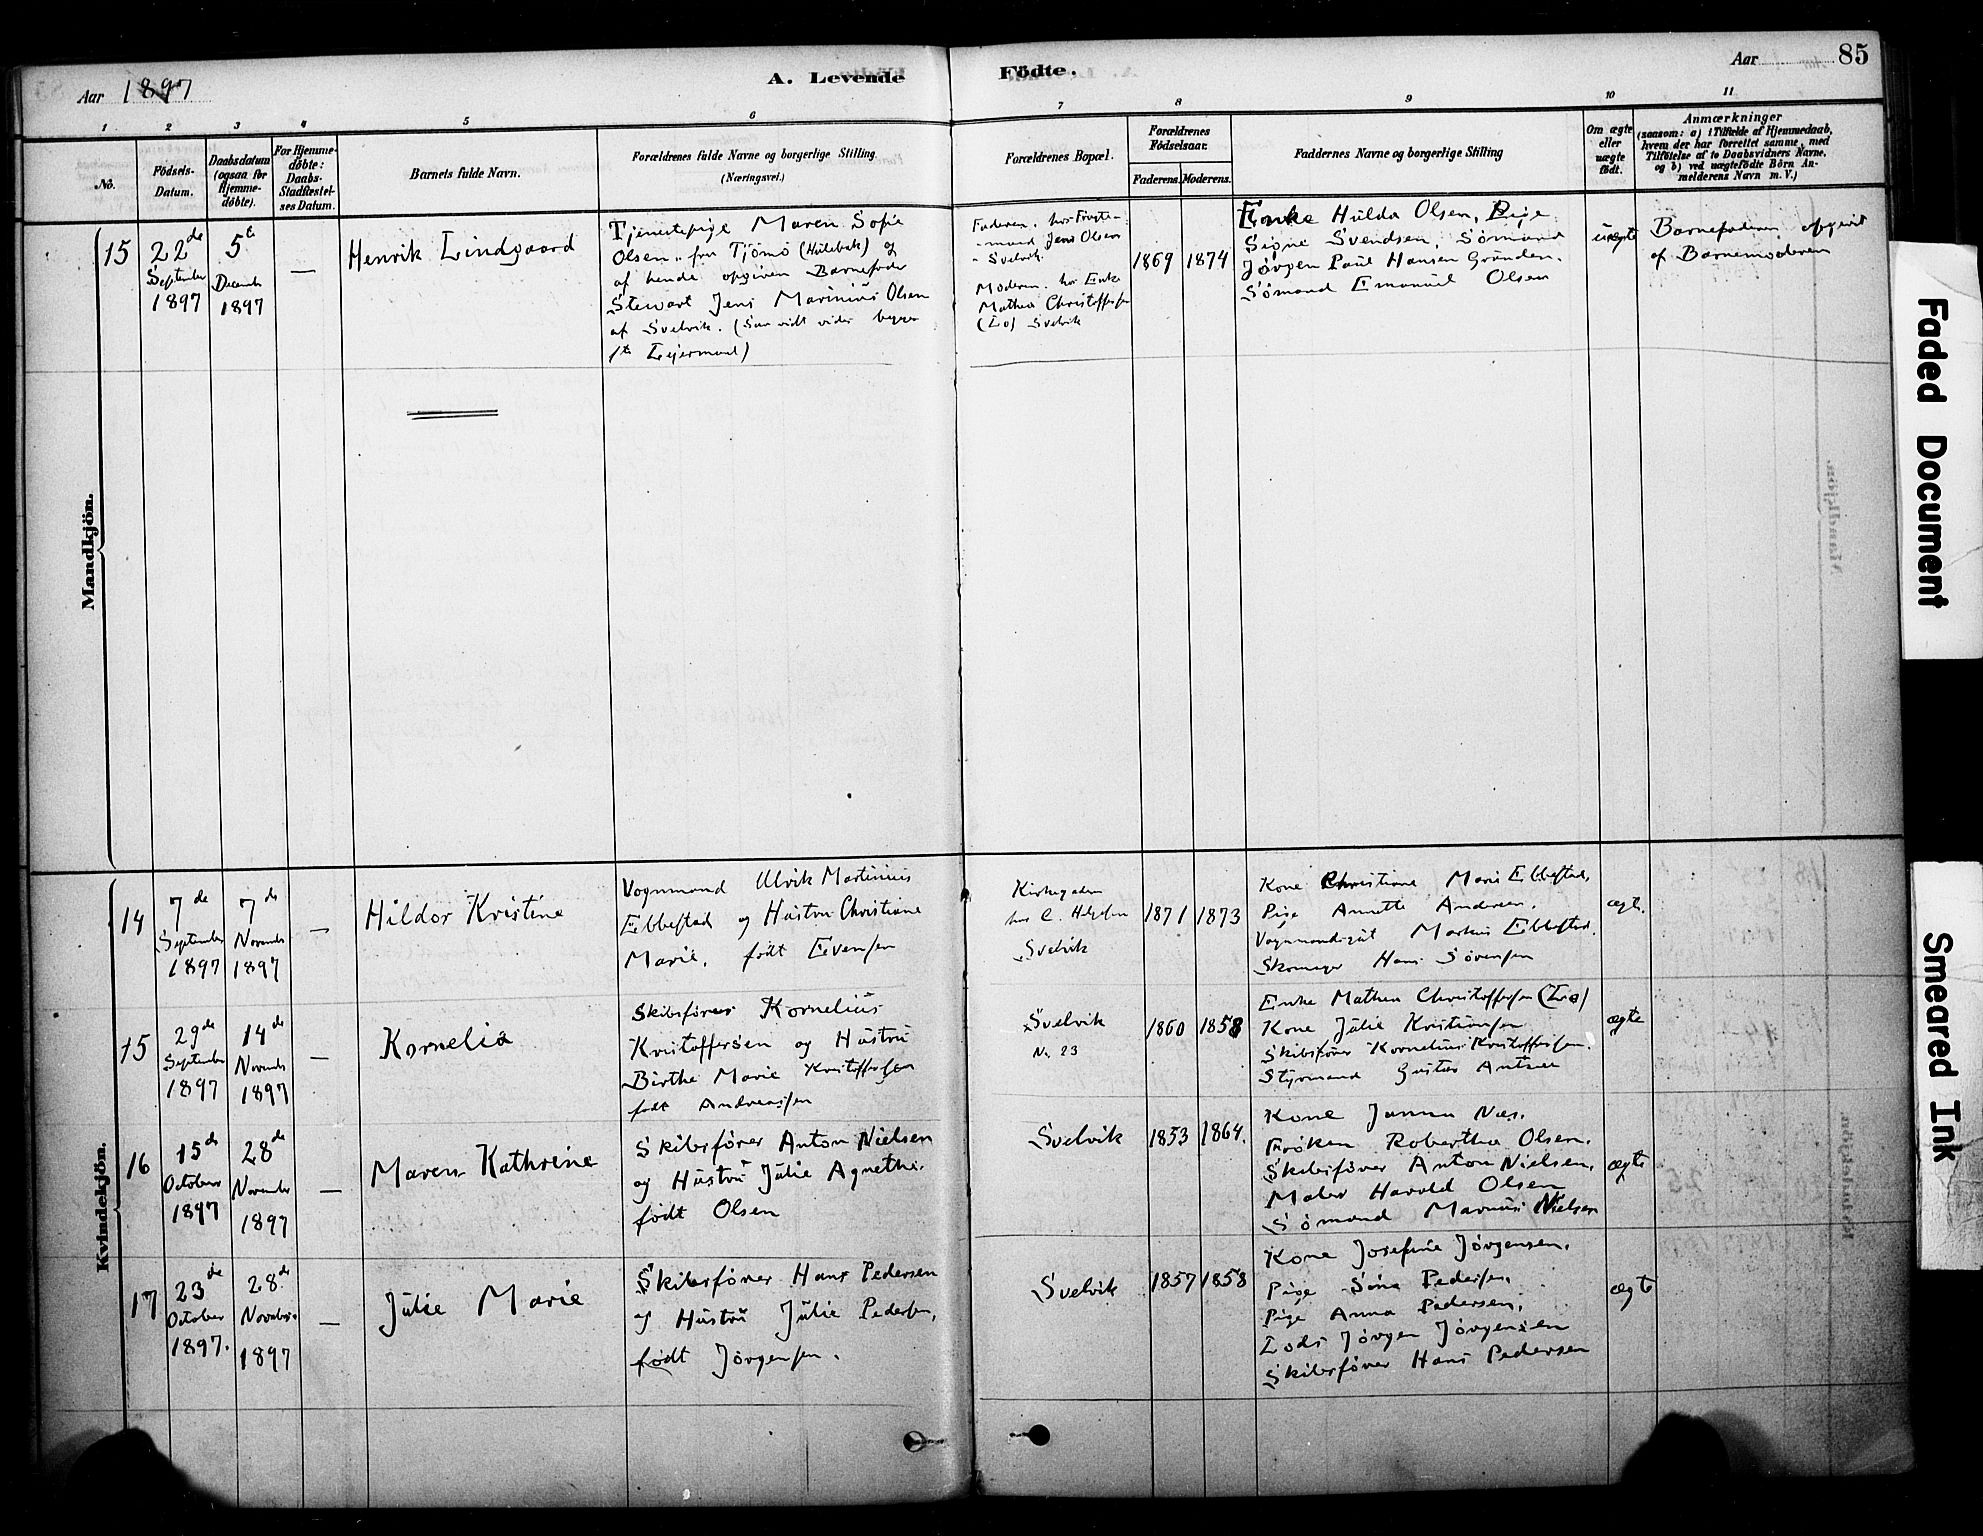 Aar 1897
A. Levende
Födte.
Aar
85
1
2
3
4
5
6
7
8
9
10
11
No.
Födsels-
Datum.
Daabsdatum
(ogsaa for
Hjemme-
döbte).
For Hjemme-
döbte:
Daabs-
Stadfæstel-
ses Datum.
Barnets fulde Navn.
Forældrenes fulde Navne og borgerlige Stilling
(Næringsvei.)
Forældrenes Bopæl.
Forældrenes
Födselsaar.
Faderens.
Moderens.
Faddernes Navne og borgerlige Stilling
Om ægte
eller
uægte
födt.
Anmærkninger
(saasom: a) i Tilfælde af Hjemmedaab,
hvem der har forrettet samme, med
Tilföielse af to Daabsvidners Navne,
og b) ved uægtefödte Börn An-
melderens Navn m. V.)
Mandkjön.
15
22de
September
1897
5te
December
1897
—
Henrik Lindgaard
Tjenestepige Maren Sofie
Olsen, fra Tjömö (Hulebak) og
af hende opgiven Barnefader
Stewart Jens Marinius Olsen
af Svelvik. (Saavidt vides begges
1ste Leiermaal)
Faderen. hos Fragte-
mand Jens Olsen
Svelvik.
Moderen. hos Enke
Mathea Christoffersen
(Lo) Svelvik
1869
1874
Enke Hulda Olsen, Pige
Signe Svendsen, Sömand
Jörgen Paul Hansen Grunden.
Sömand Emanuel Olsen
uægte
Barnefaderen opgivet
af Barnemoderen
Kvindekjön.
14
7de
September
1897
7de
November
1897
—
Hildor Kristine
Vognmand Ulrik Martinius
Ebbestad og Hustru Christiane
Marie, födt Evensen
Kirkegaden
hos C. Helgesen
Svelvik
1871
1873
Kone Christiane Marie Ebbestad,
Pige Annette Andersen,
Vognmandsgut Markus Ebbestad.
Skomager Hans Sörensen
ægte.
15
29de
September
1897
14de
November
1897
—
Kornelia
Skibsförer Kornelius
Kristoffersen og Hustru
Birthe Marie Kristoffersen
födt Andreassen
Svelvik
No. 23
1860
1858
Enke Mathea Christoffersen (Lo)
Kone Julie Kristiansen
Skibsförer Kornelius Kristoffersen.
Styrmand Gustav Antzee
ægte
16
15de
October
1897
28de
November
1897
—
Maren Kathrine
Skibsförer Anton Nielsen
og Hustru Julie Agnethe.
födt Olsen
Svelvik
1853
1864.
Kone Janna Næs.
Fröken Roberthe Olsen.
Skibsförer Anton Nielsen,
Maler Harald Olsen
Sömand Marnius Nielsen
ægte
17
23de
October
1897.
28de
November
1897
—
Julie Marie
Skibsförer Hans Pedersen
og Hustru Julie Pedersen,
födt Jörgensen.
Svelvik
1857
1858
Kone Josefine Jörgensen,
Pige Sina Pedersen,
Pige Anna Pedersen,
Lods Jörgen Jörgensen
Skibsförer Hans Pedersen
ægte
Faded Document
Smeared Ink